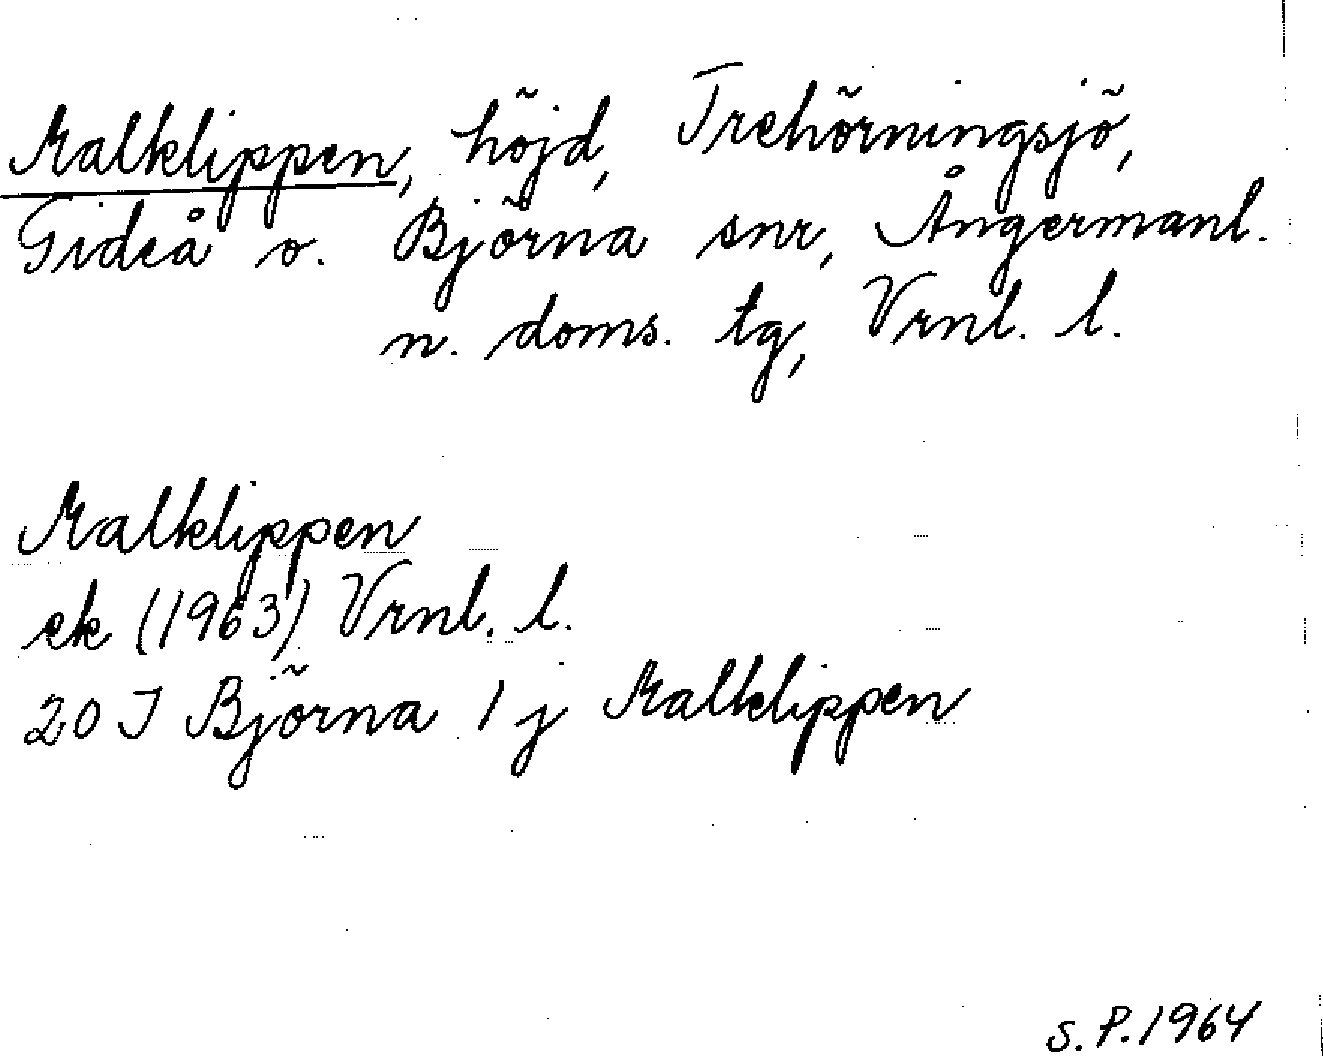 Malklippen, höjd, Trehörningsjö,
Gideå o. Björna snr, Ångermanl.
n. doms. tg, Vrnl. l.
Malklippen
ek (1963) Vrnl. l.
20 I Björna 1 j Malklippen
S. P. 1964